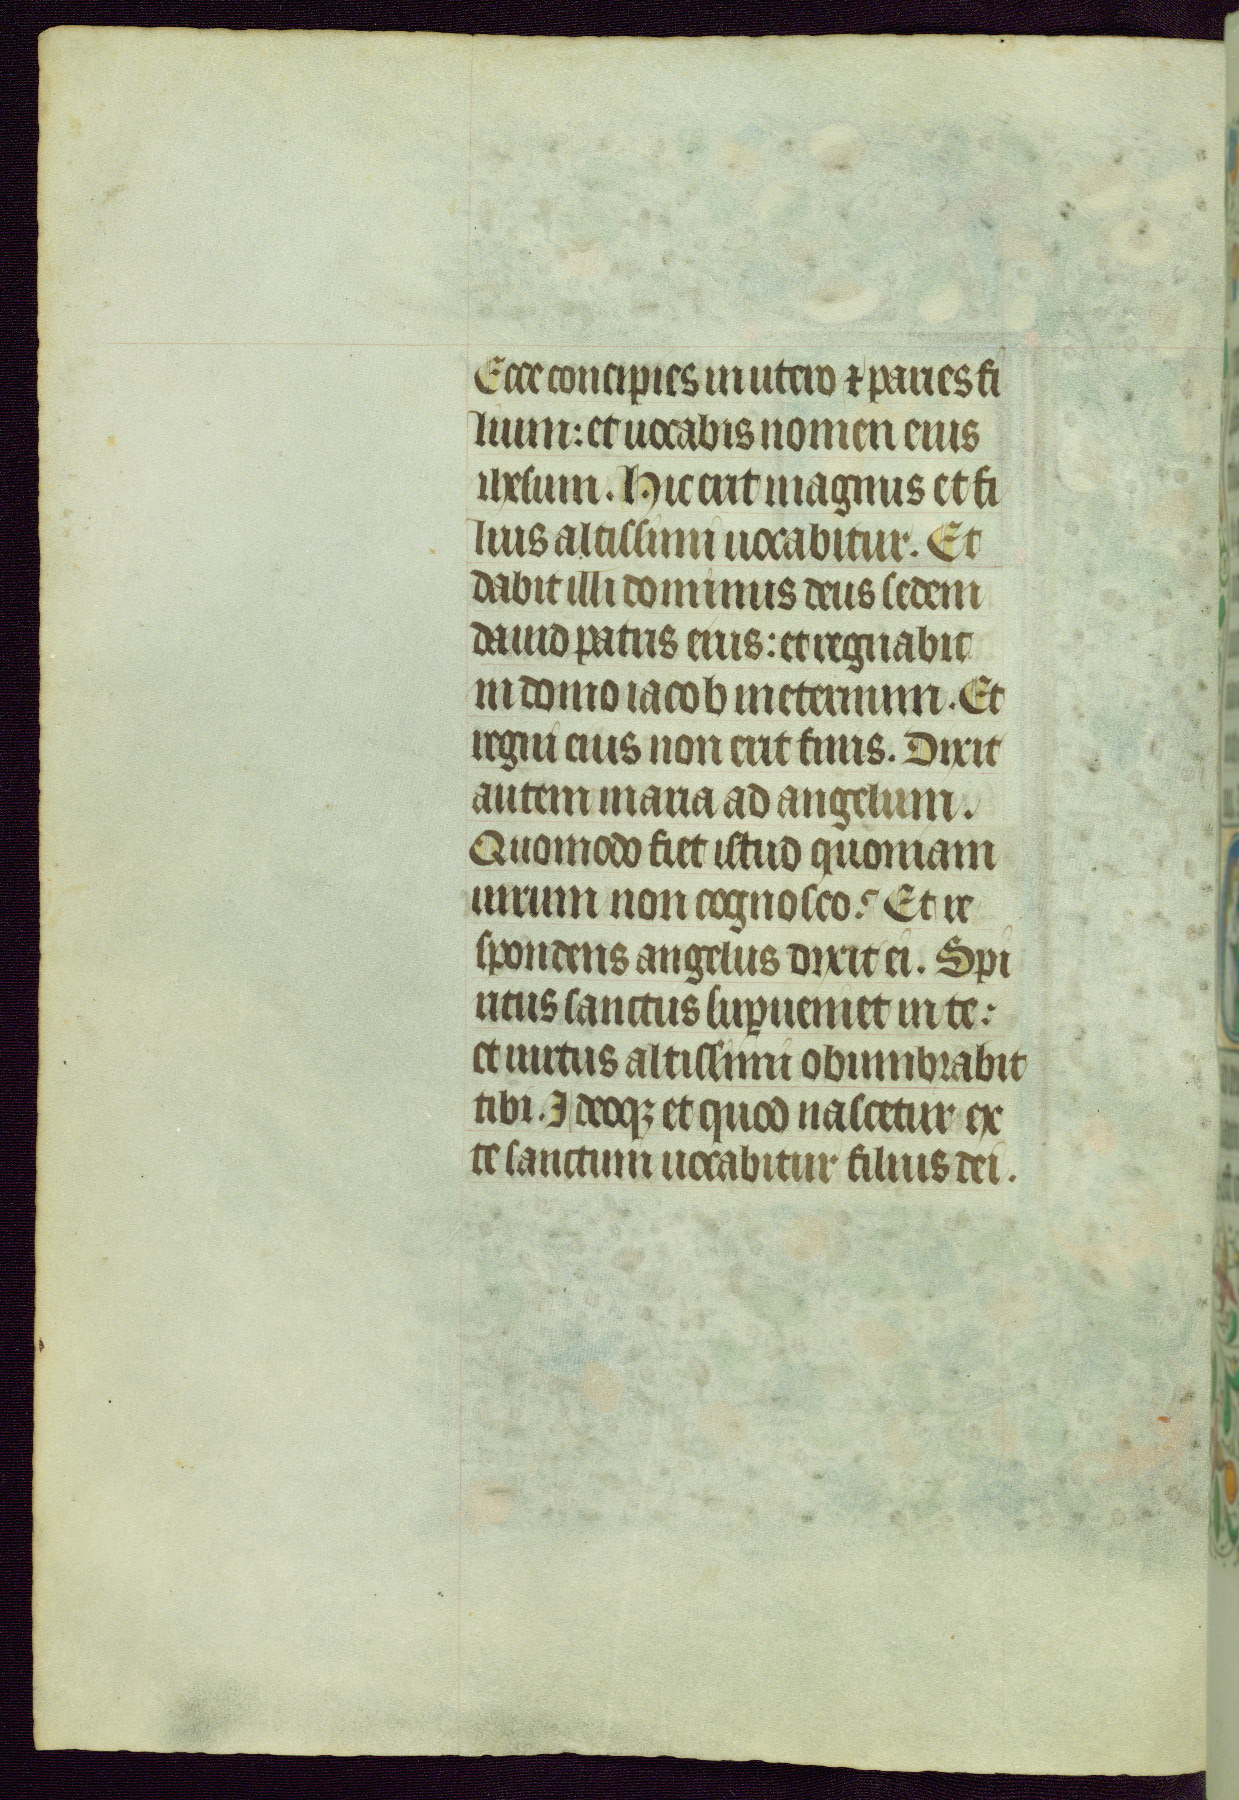 Ecce concipies in utero ⁊ paries fi
lium: et uocabis nomen eius
ihesum. Hic erit magnus et fi
lius altissimi uocabitur. Et
dabit illi dominus deus sedem
dauid patris eius: et regnabit
in domo iacob in eternum. Et
regni eius non erit finis. Dixit
autem maria ad angelum.
Quomodo fiet istud quoniam
uirum non cognosco? Et re
spondens angelus dixit ei. Spi
ritus sanctus suꝑueniet in te:
et uirtus altissimi obumbrabit
tibi. Ideoqꝫ et quod nascetur ex
te sanctum uocabitur filius dei.